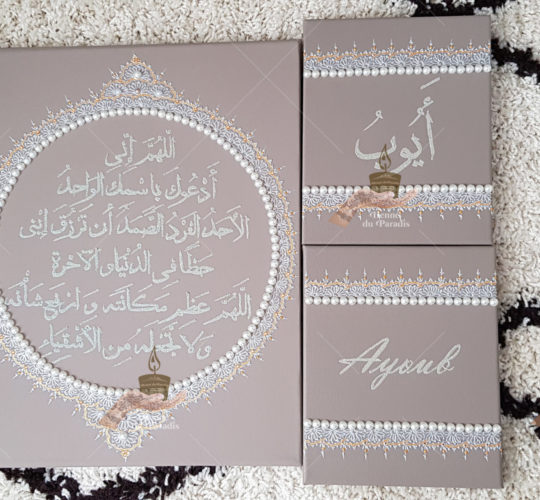 اللهم إني
أدعوك باسمك الواحد
الأحد الفرد الصمد أن ترزق إبني
حظا في الدنيا و الآخرة
اللهم عظم مكانته و ارفع شأنه
ولا تجعله من الأشقياء
أَيُّوبُ
Henné
du Paradis
Ayoub
du Paradis